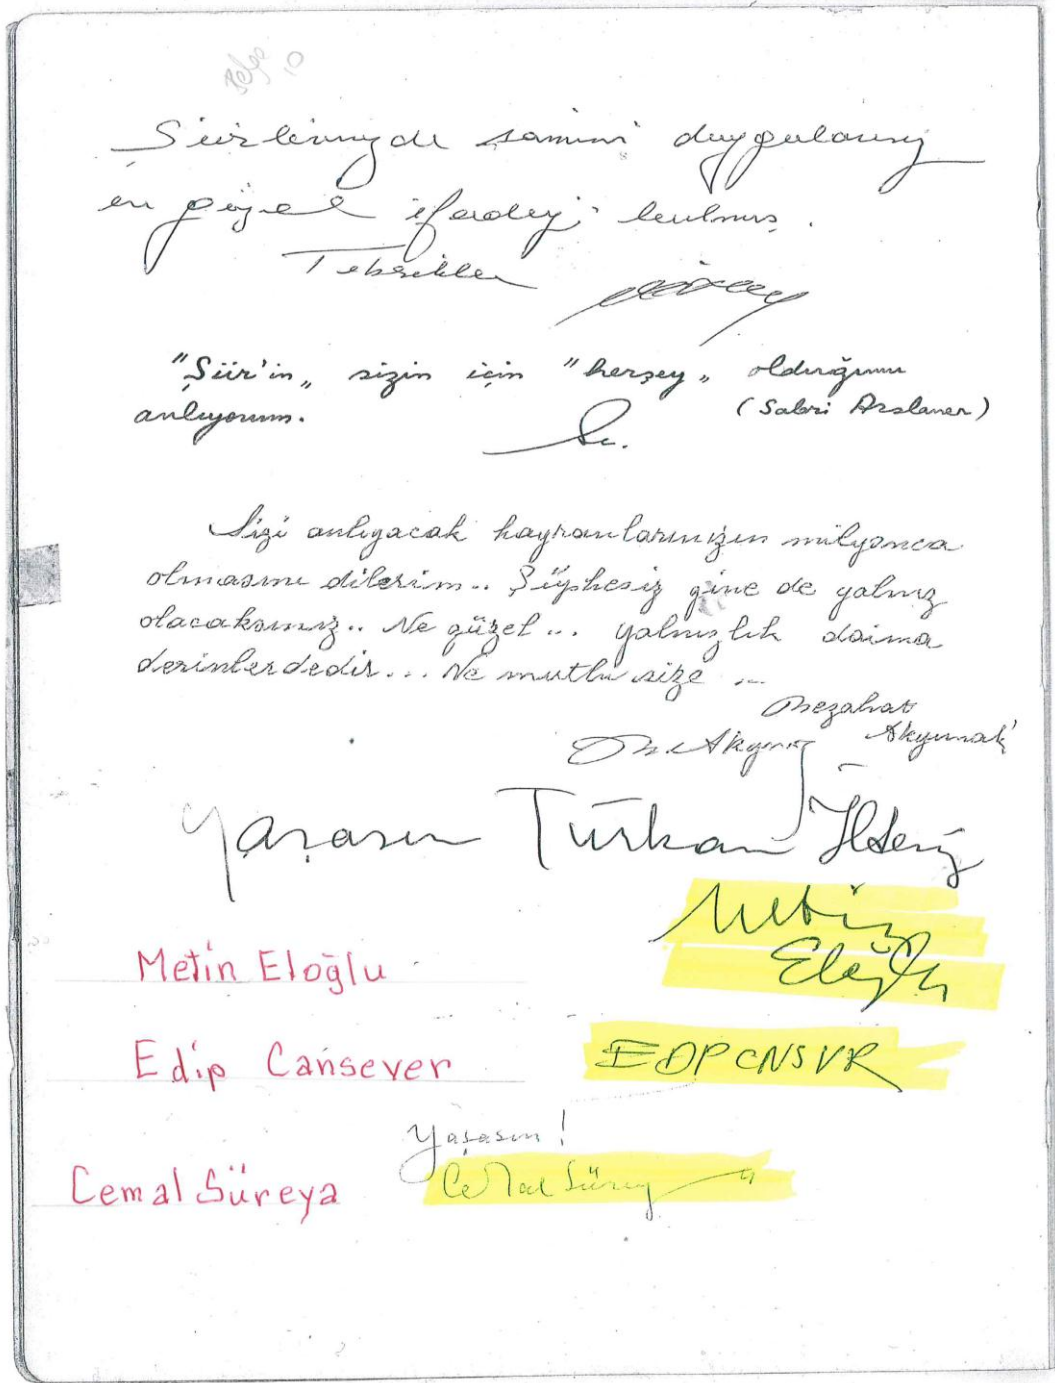 Belge 10
Şiirlerinizde samimi duygularınız
en güzel ifadeyi bulmuş.
Tebrikler
"Şiir'in„ sizin için "herşey„ olduğunu
anlıyorum. (Sabri Arslaner)
Sizi anlıyacak hayranlarınızın milyonca
olmasını dilerim.. Şüphesiz gine de yalnız
olacaksınız.. Ne güzel... yalnızlık daima
derinlerdedir... Ne mutlu size ...
Mezahat
Akyunak
Yaşasın Türkan İldeniz
Metin
Eloğlu
Metin Eloğlu
Edip Cansever EDPCNSVR
Yaşasın!
Cemal Süreya Cemal Süreya